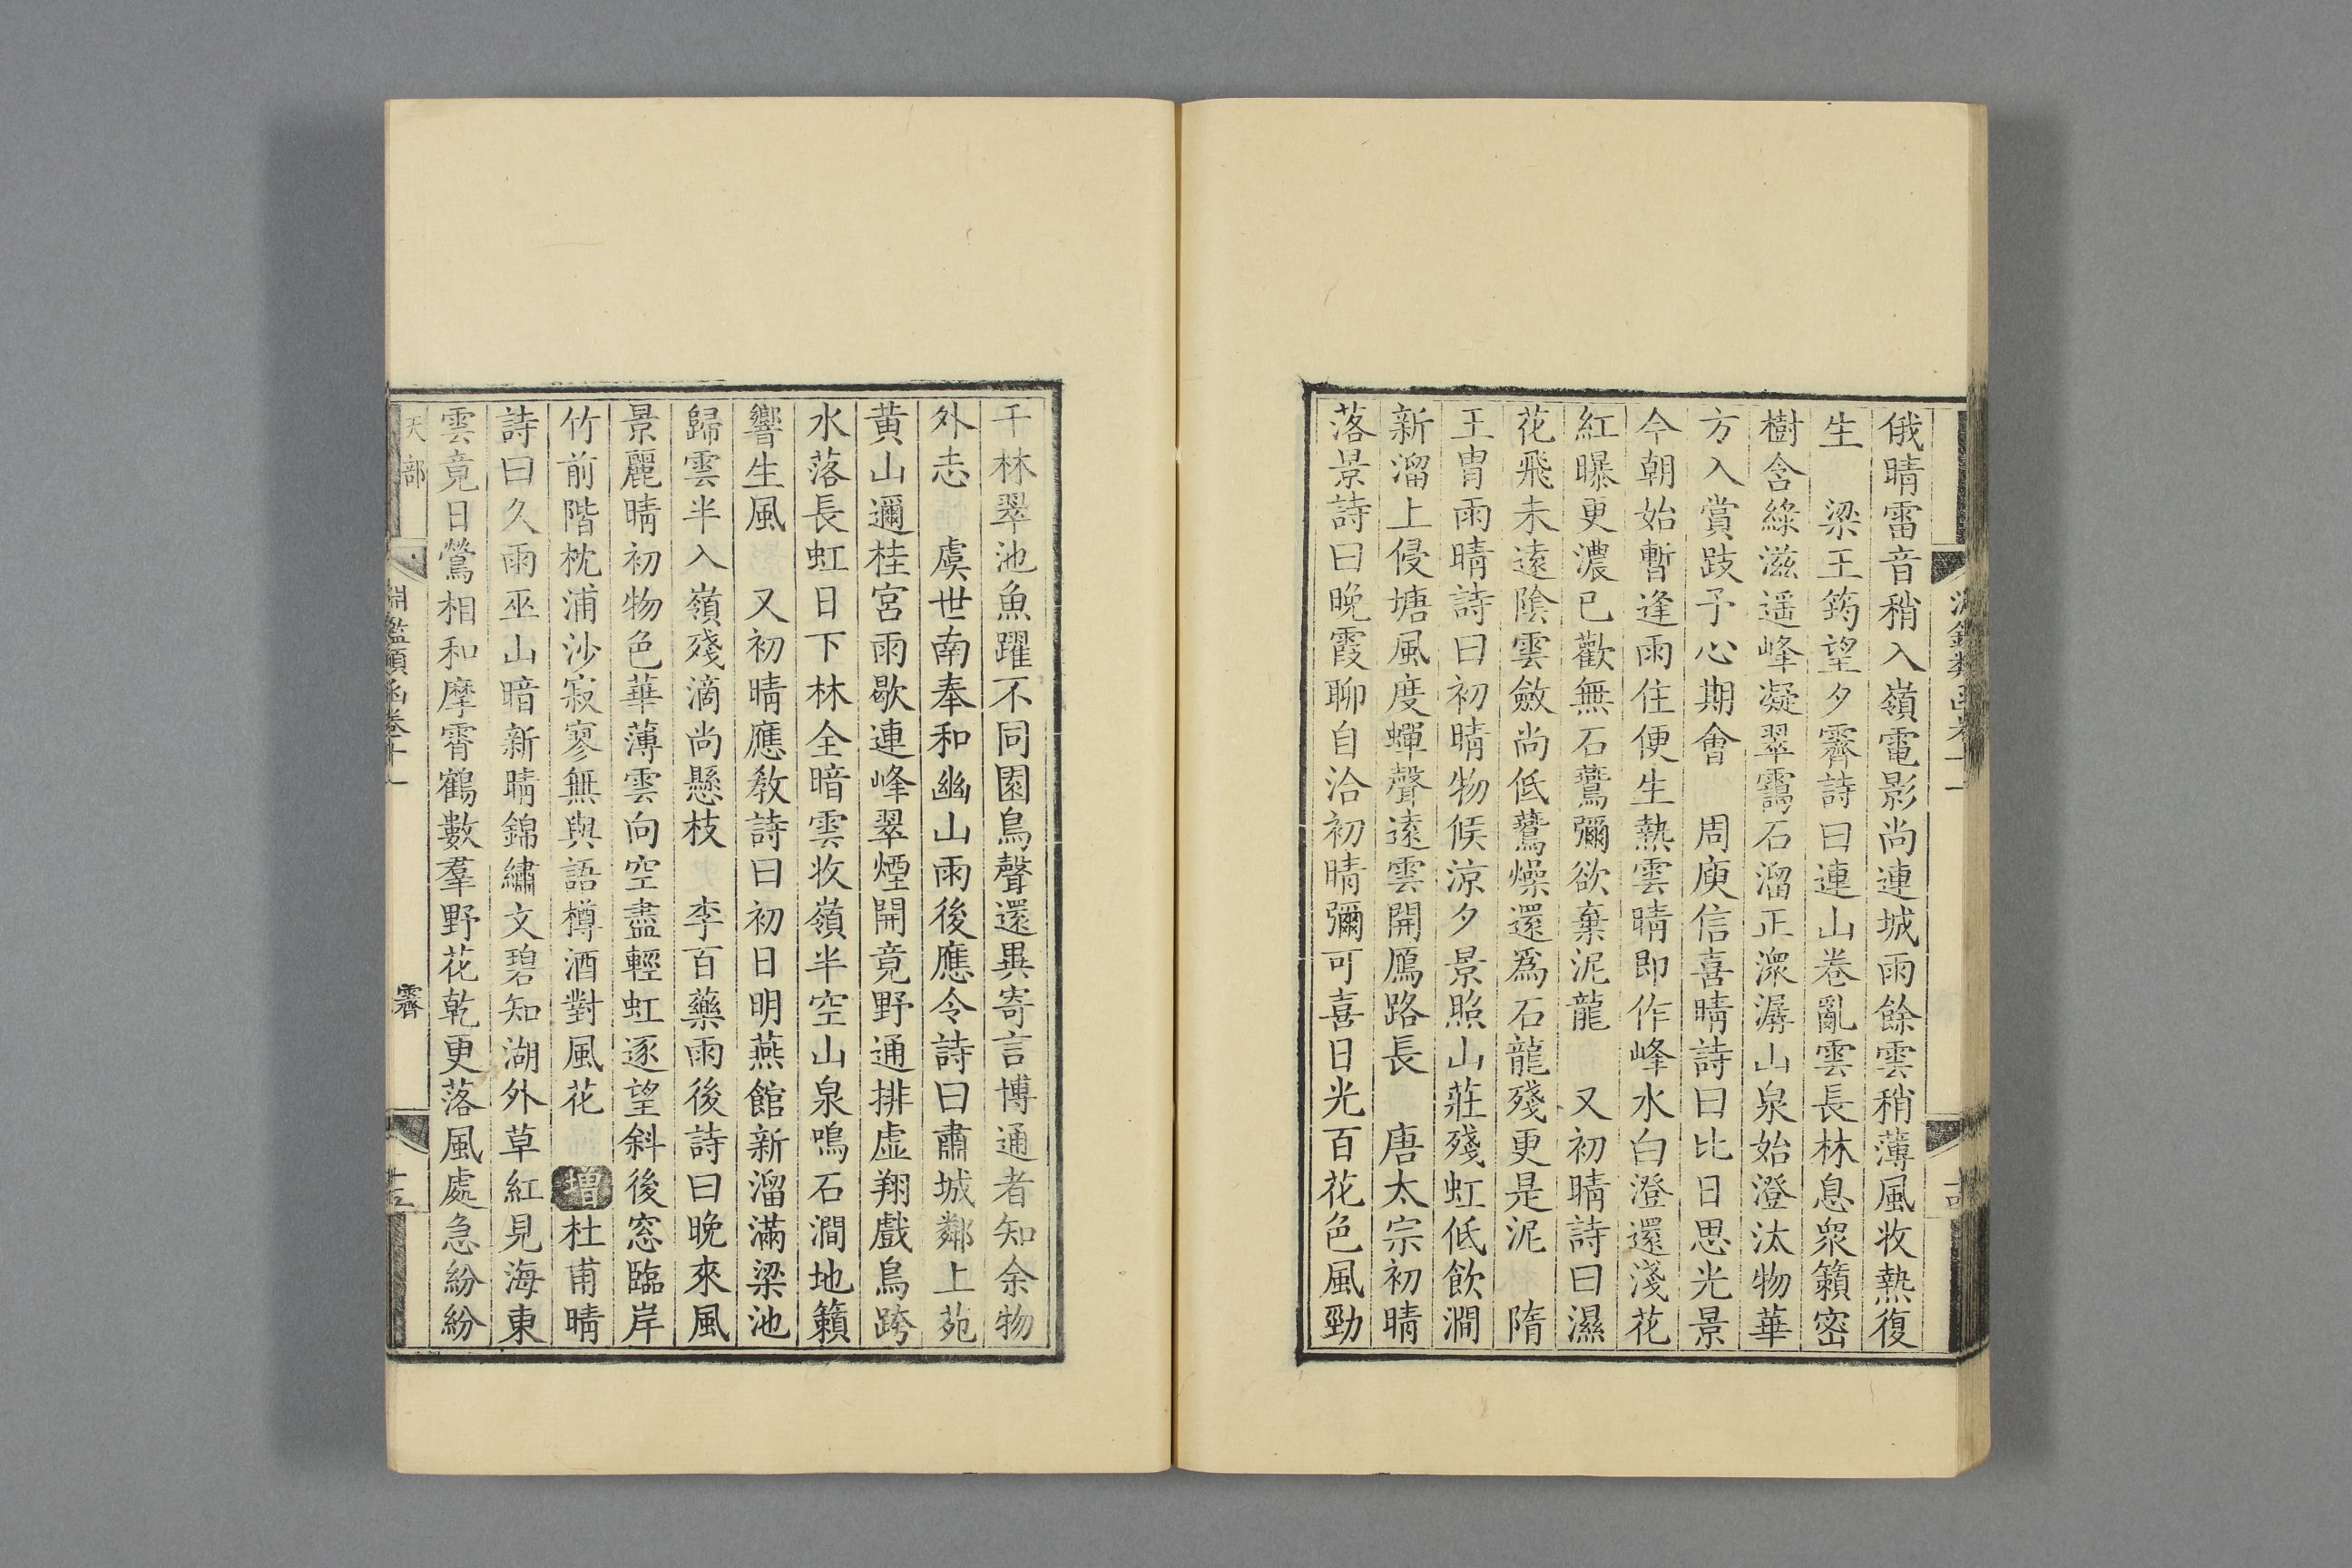 俄晴雷音稍入嶺電影尚連城雨餘雲稍薄風收熱復
生　梁王筠望夕霽詩曰連山卷亂雲長林息衆籟密
樹含綠滋遥峰凝翠靄石溜正潨潺山泉始澄汰物華
方入賞跂予心期會　周庾信喜晴詩曰比日思光景
今朝始暫逢雨住便生熱雲晴即作峰水白澄還淺花
紅曝更濃已歡無石鷰彌欲棄泥龍　又初晴詩曰濕
花飛未遠陰雲斂尚低鷰燥還爲石龍殘更是泥　隋
王冑雨晴詩曰初晴物候涼夕景照山莊殘虹低飲澗
新溜上侵塘風度蟬聲遠雲開鴈路長　唐太宗初晴
落景詩曰晚霞聊自洽初晴彌可喜日光百花色風勁
千林翠池魚躍不同園鳥聲還異寄言博通者知余物
外志　虞世南奉和幽山雨後應令詩曰肅城鄰上苑
黄山邇桂宮雨歇連峰翠煙開竟野通排虚翔戲鳥跨
水落長虹日下林全暗雲收嶺半空山泉鳴石澗地籟
響生風　又初晴應教詩曰初日明燕館新溜滿梁池
歸雲半入嶺殘滴尚懸枝　李百藥雨後詩曰晚來風
景麗晴初物色華薄雲向空盡輕虹逐望斜後窓臨岸
竹前階枕浦沙寂寥無與語樽酒對風花　增杜甫晴
詩曰久雨巫山暗新晴錦繡文碧知湖外草紅見海東
雲竟日鶯相和摩霄鶴數羣野花乾更落風處急紛紛
天部
淵鑑類函卷十一
霽
十五